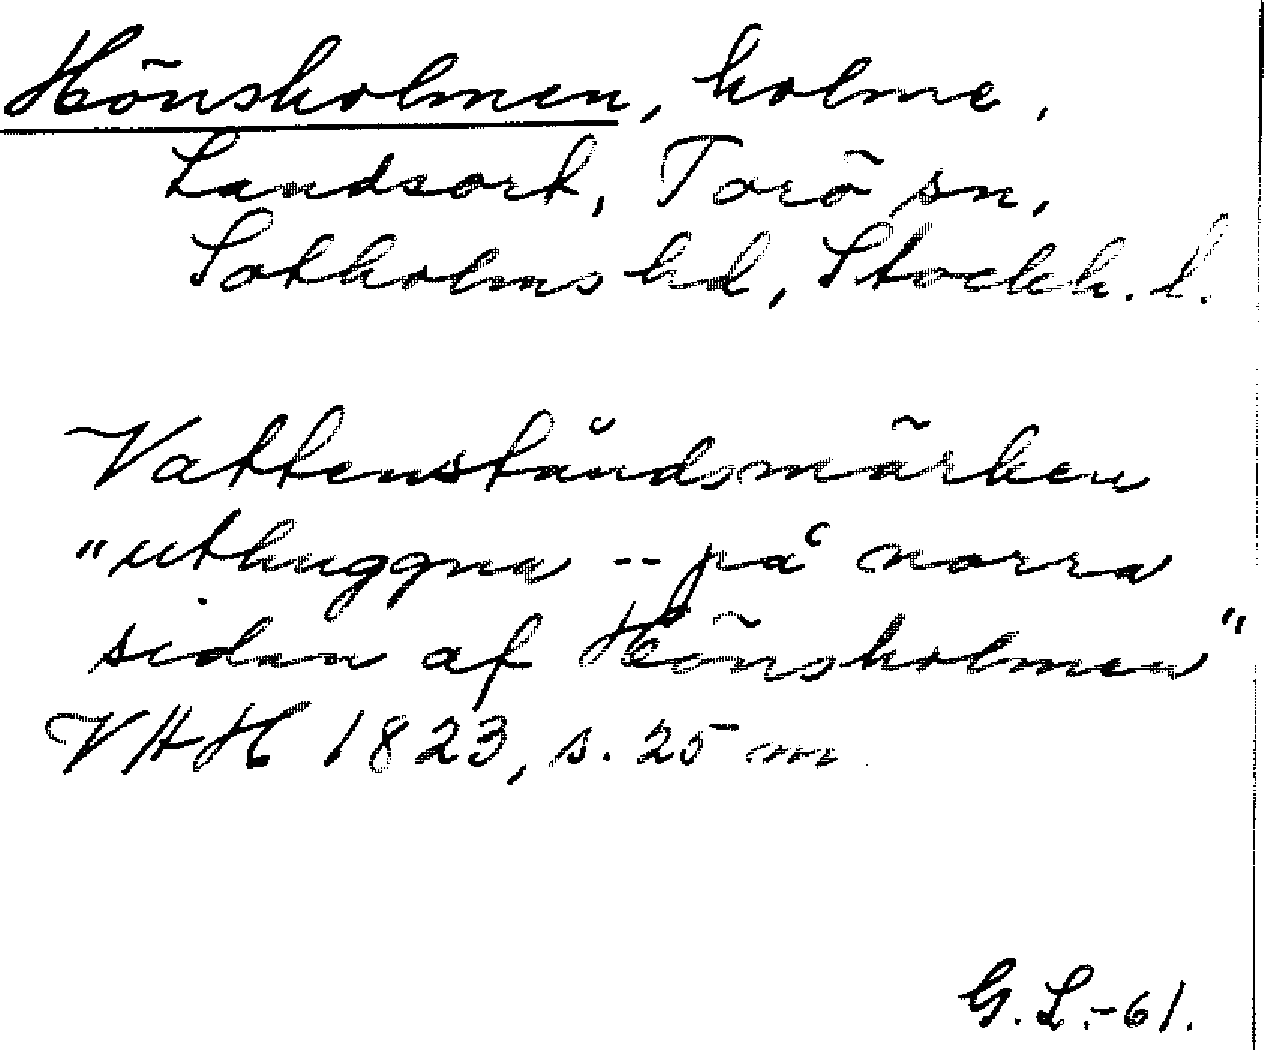 Hönsholmen, holme,
Landsort, Torö sn,
Sotholms hd, Stockh. l.
Vattenståndsmärken
"uthuggna -- på norra
sidan af Hönsholmen"
VHH 1823, s. 25 m
G. L.-61.